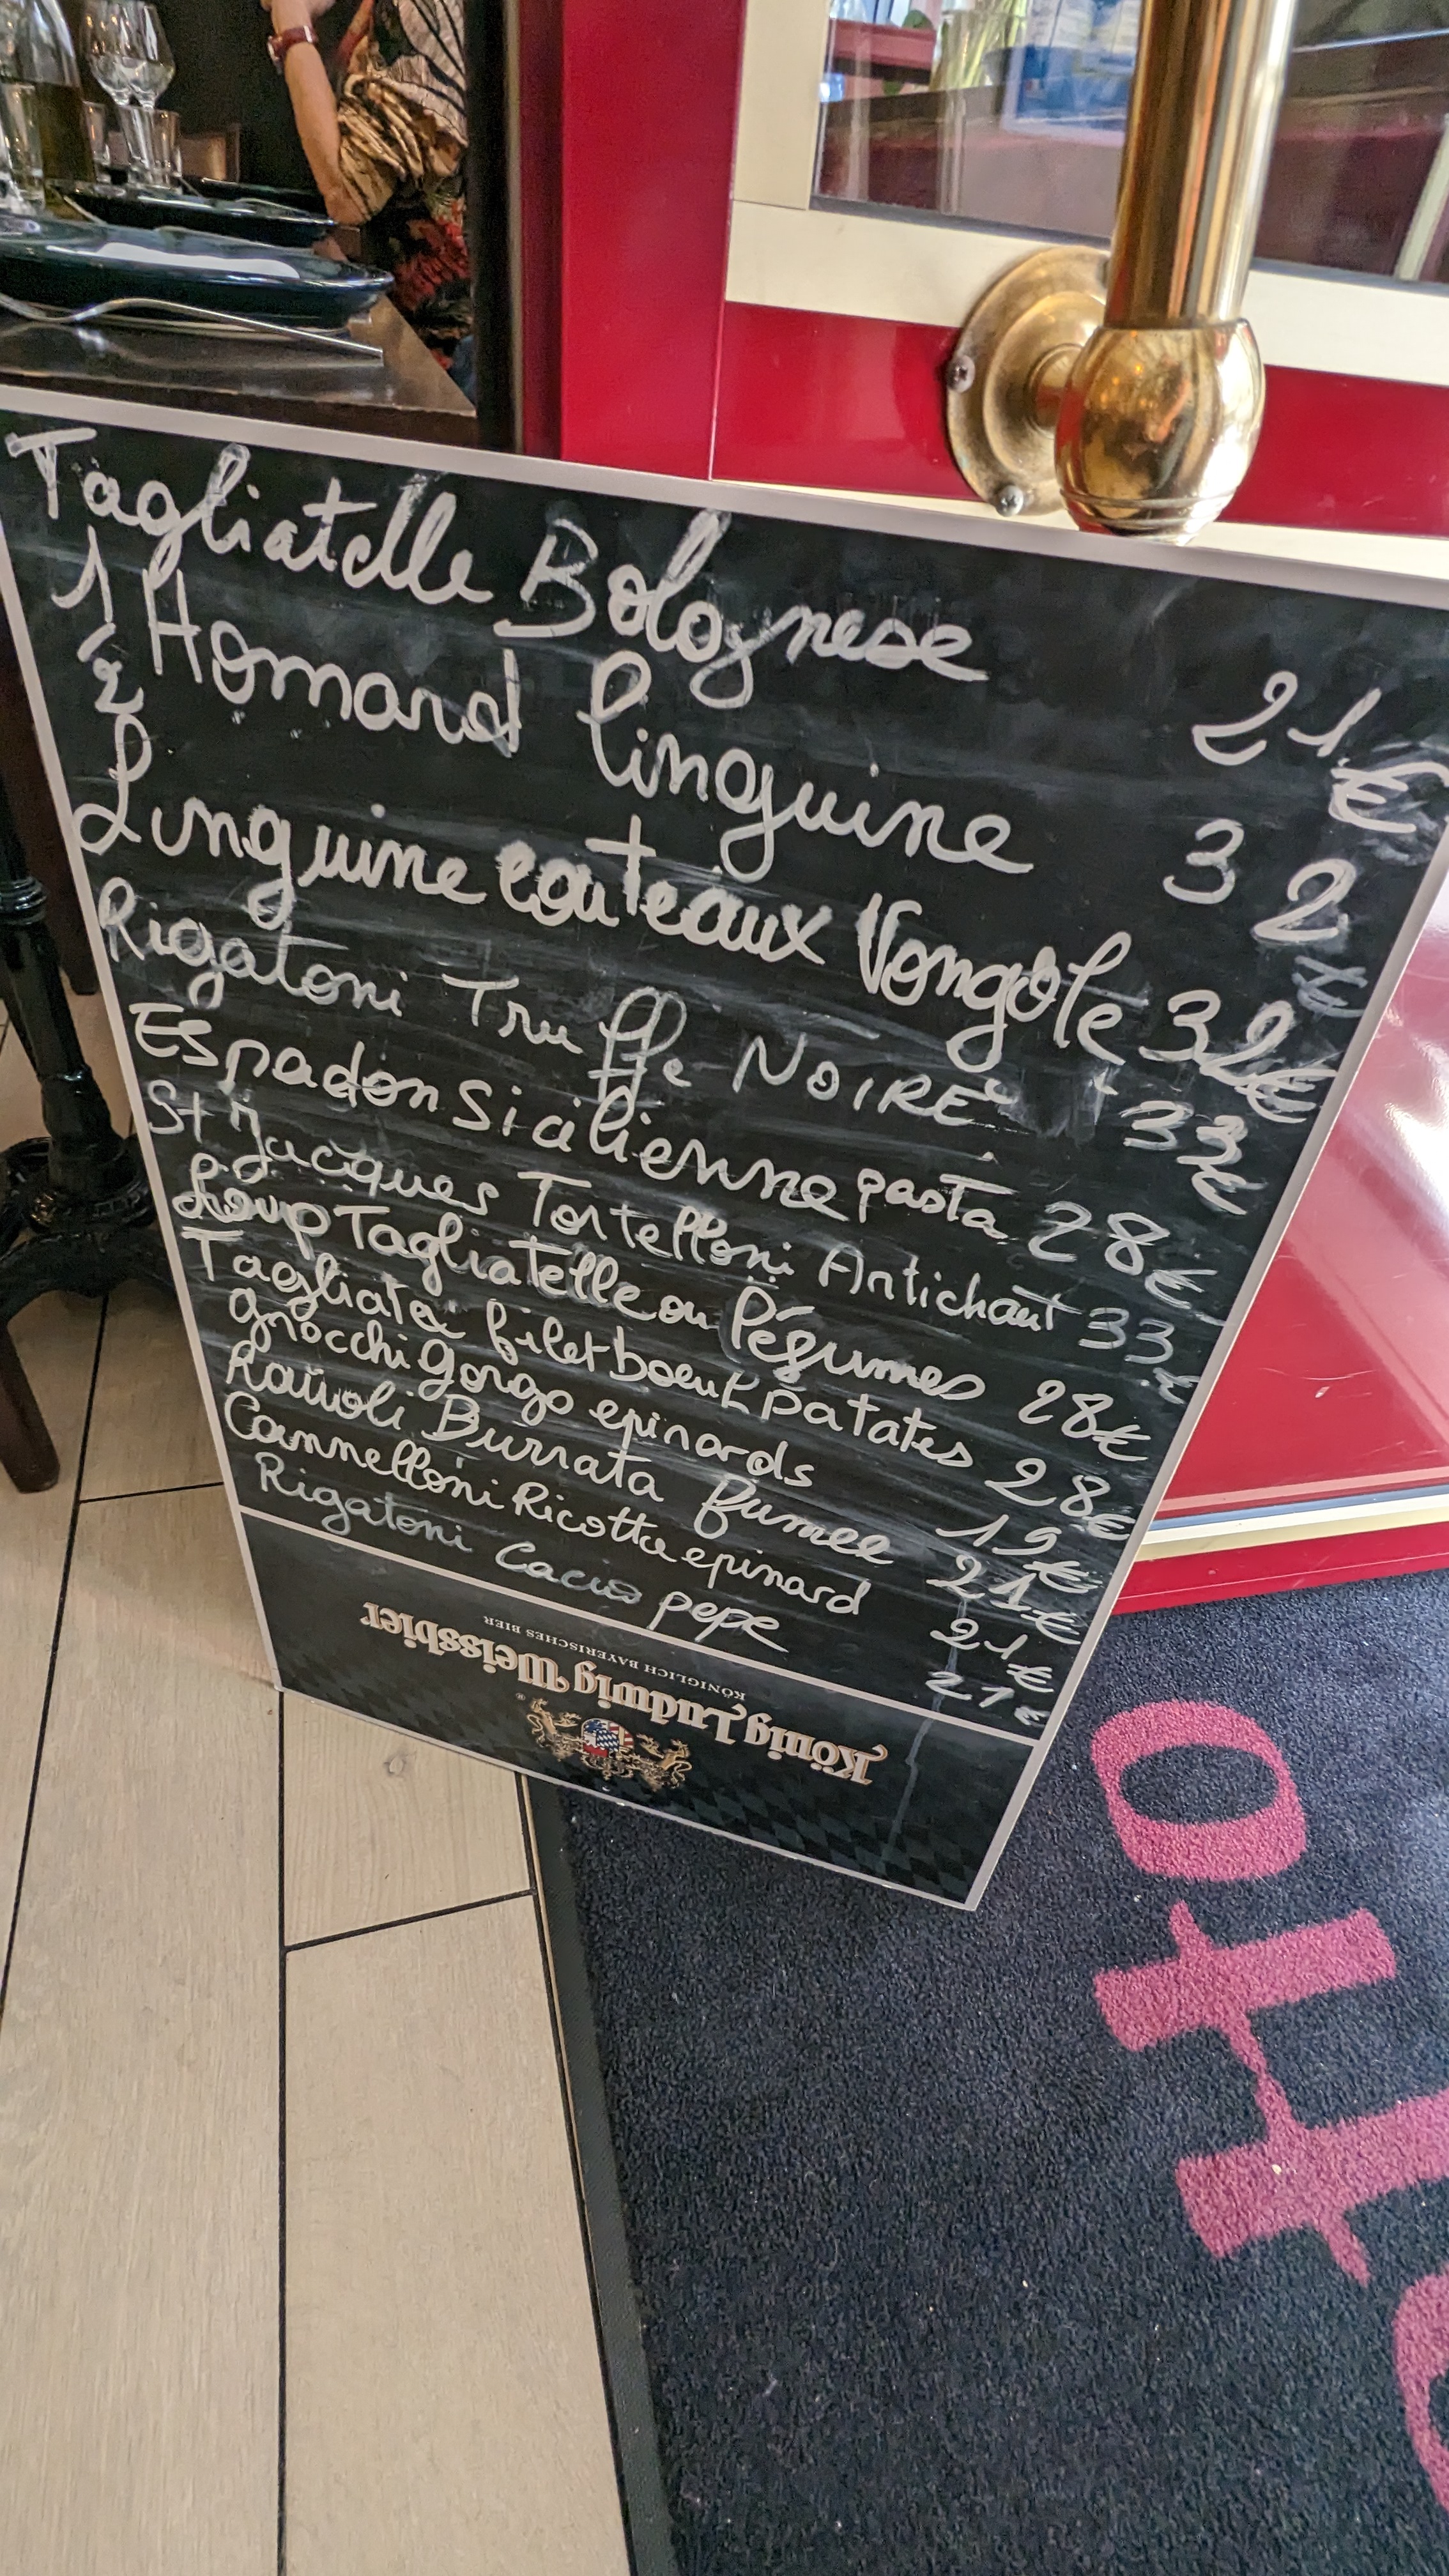 Tagliatelle Bolognese 21€
1/2 Homard linguine 32€
Linguine couteaux Vongole 32€
Rigatoni Truffe NOIRE 33€
Espadon Sicilienne pasta 28€
St Jacques Tortelloni Antichaut 33€
Loup Tagliatelle ou légumes 28€
Tagliata filet boeuf patates 28€
gnocchi gorgo epinards 19€
Ravioli Burrata fumee 21€
Cannelloni Ricotta epinard 21€
Rigatoni Cacio pepe 21€
König Ludwig Weissbier
KÖNIGLICH BAYERISCHES BIER